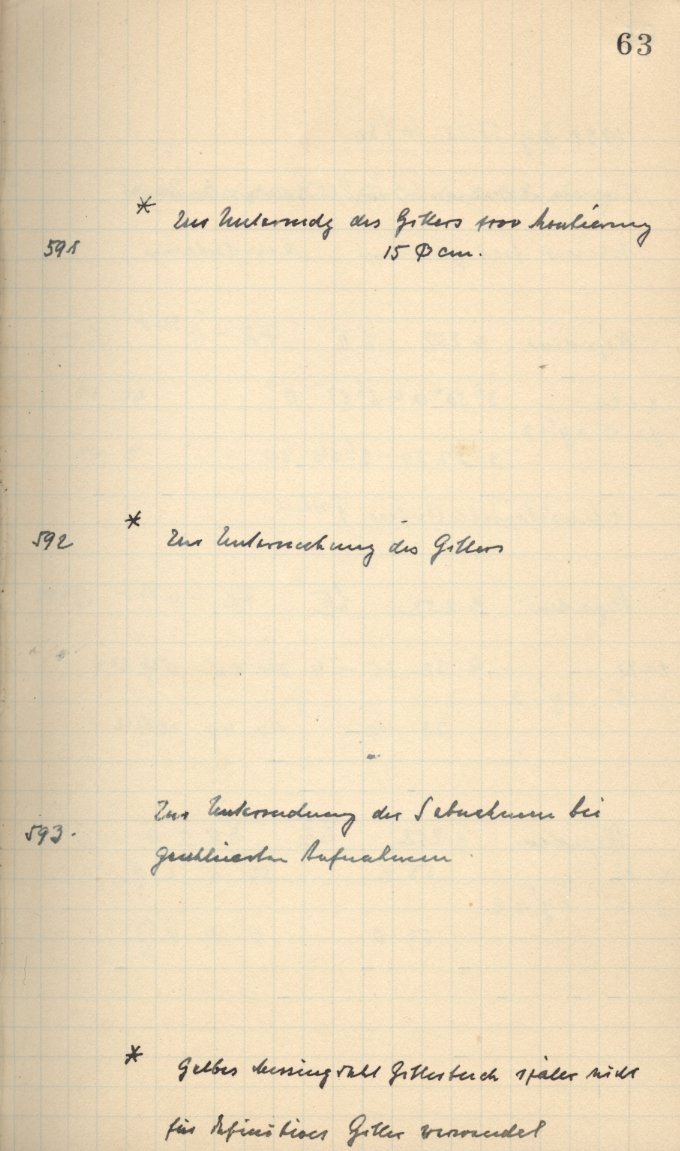 63
* Zur Untersuchg des Gitters Montierung
591 15 Φ cm.
592 * Zur Untersuchung des Gitters
Zur Untersuchung der bei
593. Aufnahmen
* Gelbes später nicht
für definitives Gitter verwendet